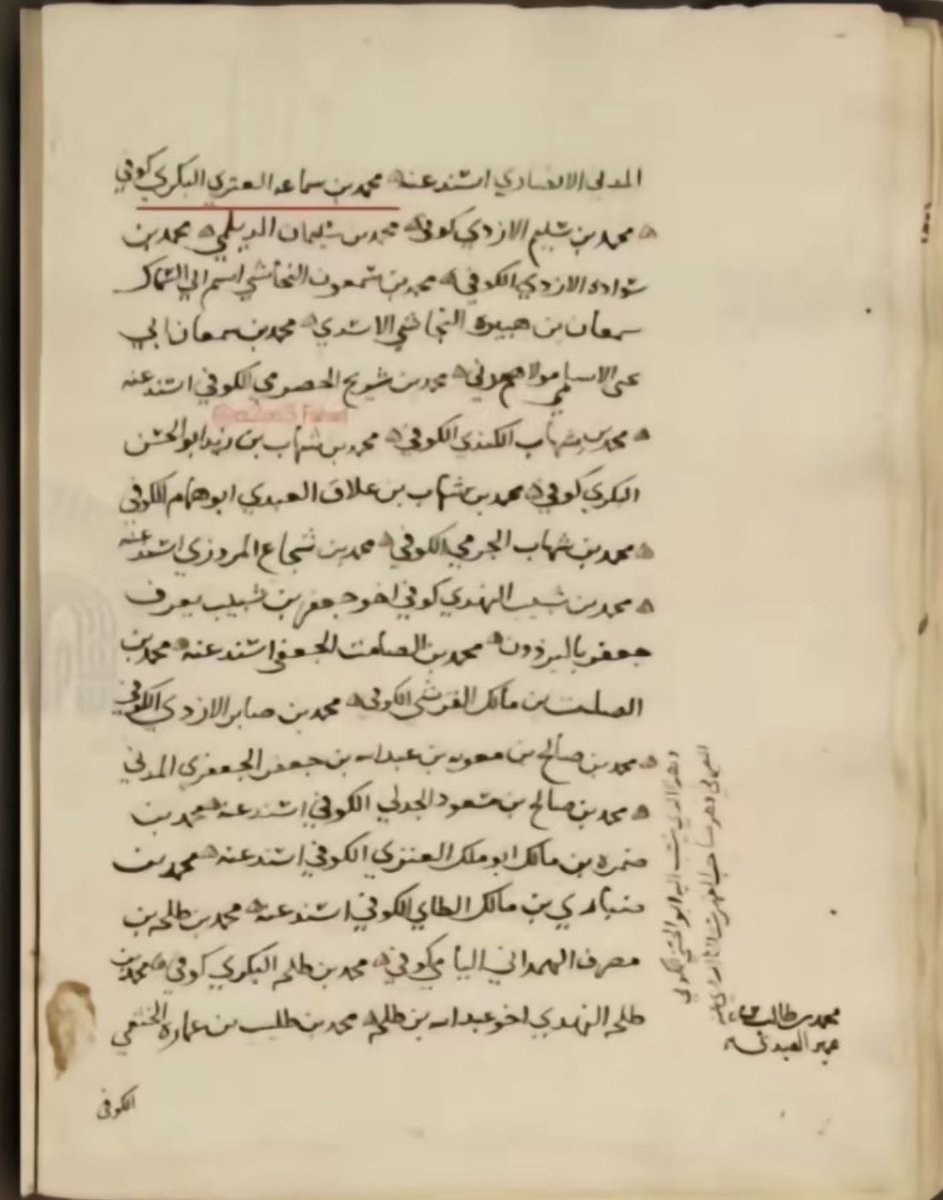 المدني الانصاري اسند عنه محمد بن سماعه العنزي البكري كوفي
محمد بن سليم الازدي كوفي محمد بن سليمان الديلمي محمد بن
سواده الازدي الكوفي محمد بن سمعون النجاشي اسم ابي السماك
سمعان بن هبيره النجاشي الاسدي محمد بن سمعان ابي
يحيى الاسلمي مولاهم مدني محمد بن شريح الحضرمي الكوفي اسند عنه
محمد بن شهاب الكندي الكوفي محمد بن شهاب بن زيد ابو الحسن
البكري كوفي محمد بن شهاب بن علاق العبدي ابو همام الكوفي
محمد بن شهاب الجرمي الكوفي محمد بن شجاع المروزي اسند عنه
محمد بن شبيب النهدي كوفي اخو جعفر بن شبيب يعرف
جعفر بالبرذون محمد بن الصامت الجعفي اسند عنه محمد بن
الصلت بن مالك القرشي الكوفي محمد بن صابر الازدي الكوفي
محمد بن صالح بن معويه بن عبد الله بن جعفر الجعفري المدني
محمد بن صالح بن مسعود الجدلي الكوفي اسند عنه محمد بن
ضمره بن مالك ابو ملك العنزي الكوفي اسند عنه محمد بن
ضباري بن مالك الطاي الكوفي اسند عنه محمد بن طلحه بن
مصرف الهمداني اليامي كوفي محمد بن طلحه البكري كوفي محمد بن
طلحه النهدي اخو عبد الله بن طلحه محمد بن طليب بن عماره الخثعمي
الكوفي
محمد بن طالب
عمير العبدي